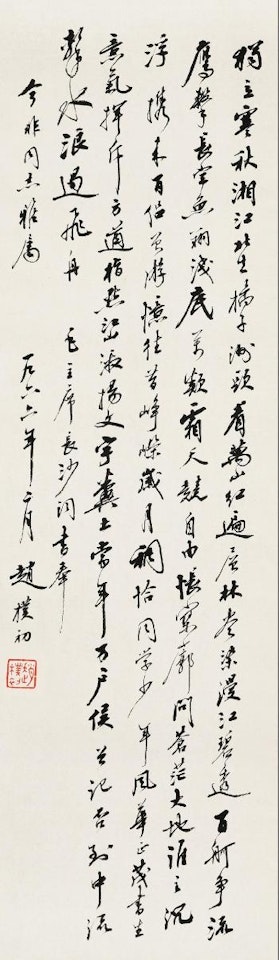 獨立寒秋湘江北去橘子洲頭看萬山紅遍层林尽染漫江碧透百舸争流
鷹擊長空魚翔淺底萬類霜天競自由悵寥廓問蒼茫大地誰主沉
浮携来百侣曾游憶往昔崢嶸歲月稠恰同学少年風華正茂書生
意氣揮斥方遒指點江山激揚文字糞土當年万户侯曾记否到中流
擊水浪遏飛舟 毛主席長沙词書奉
今非同志雅屬
一九六六年月 趙樸初